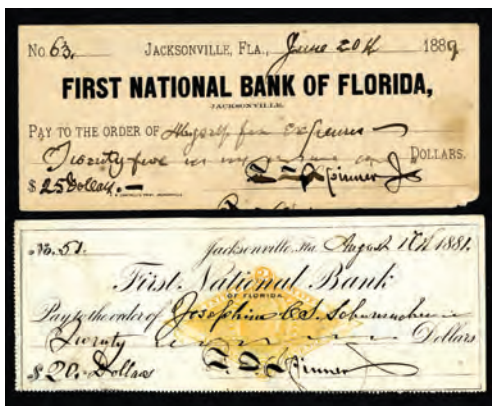 No 63. JACKSONVILLE, FLA., June 20th 1889
FIRST NATIONAL BANK OF FLORIDA,
JACKSONVILLE.
PAY TO THE ORDER OF Myself for expenses
Twenty five DOLLARS.
$ 25 Dollars. Spinner
No. 51. Jacksonville, Fla. August 17th 1881.
First National Bank
OF FLORIDA
Pay to the order of Josephine Schumacher
Twenty Dollars
$ 20. Dollars Spinner